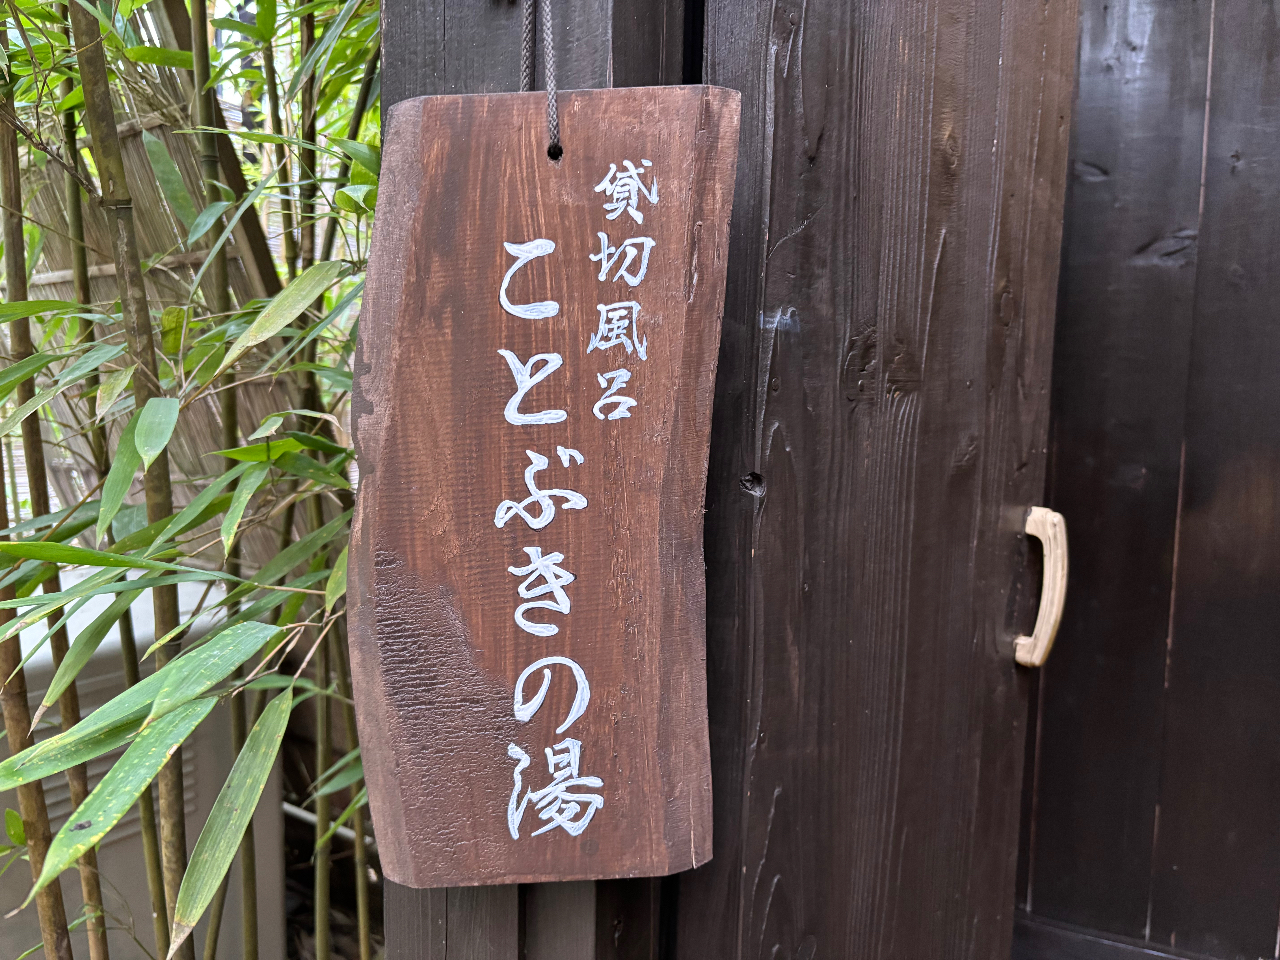 貸切風呂
ことぶきの湯